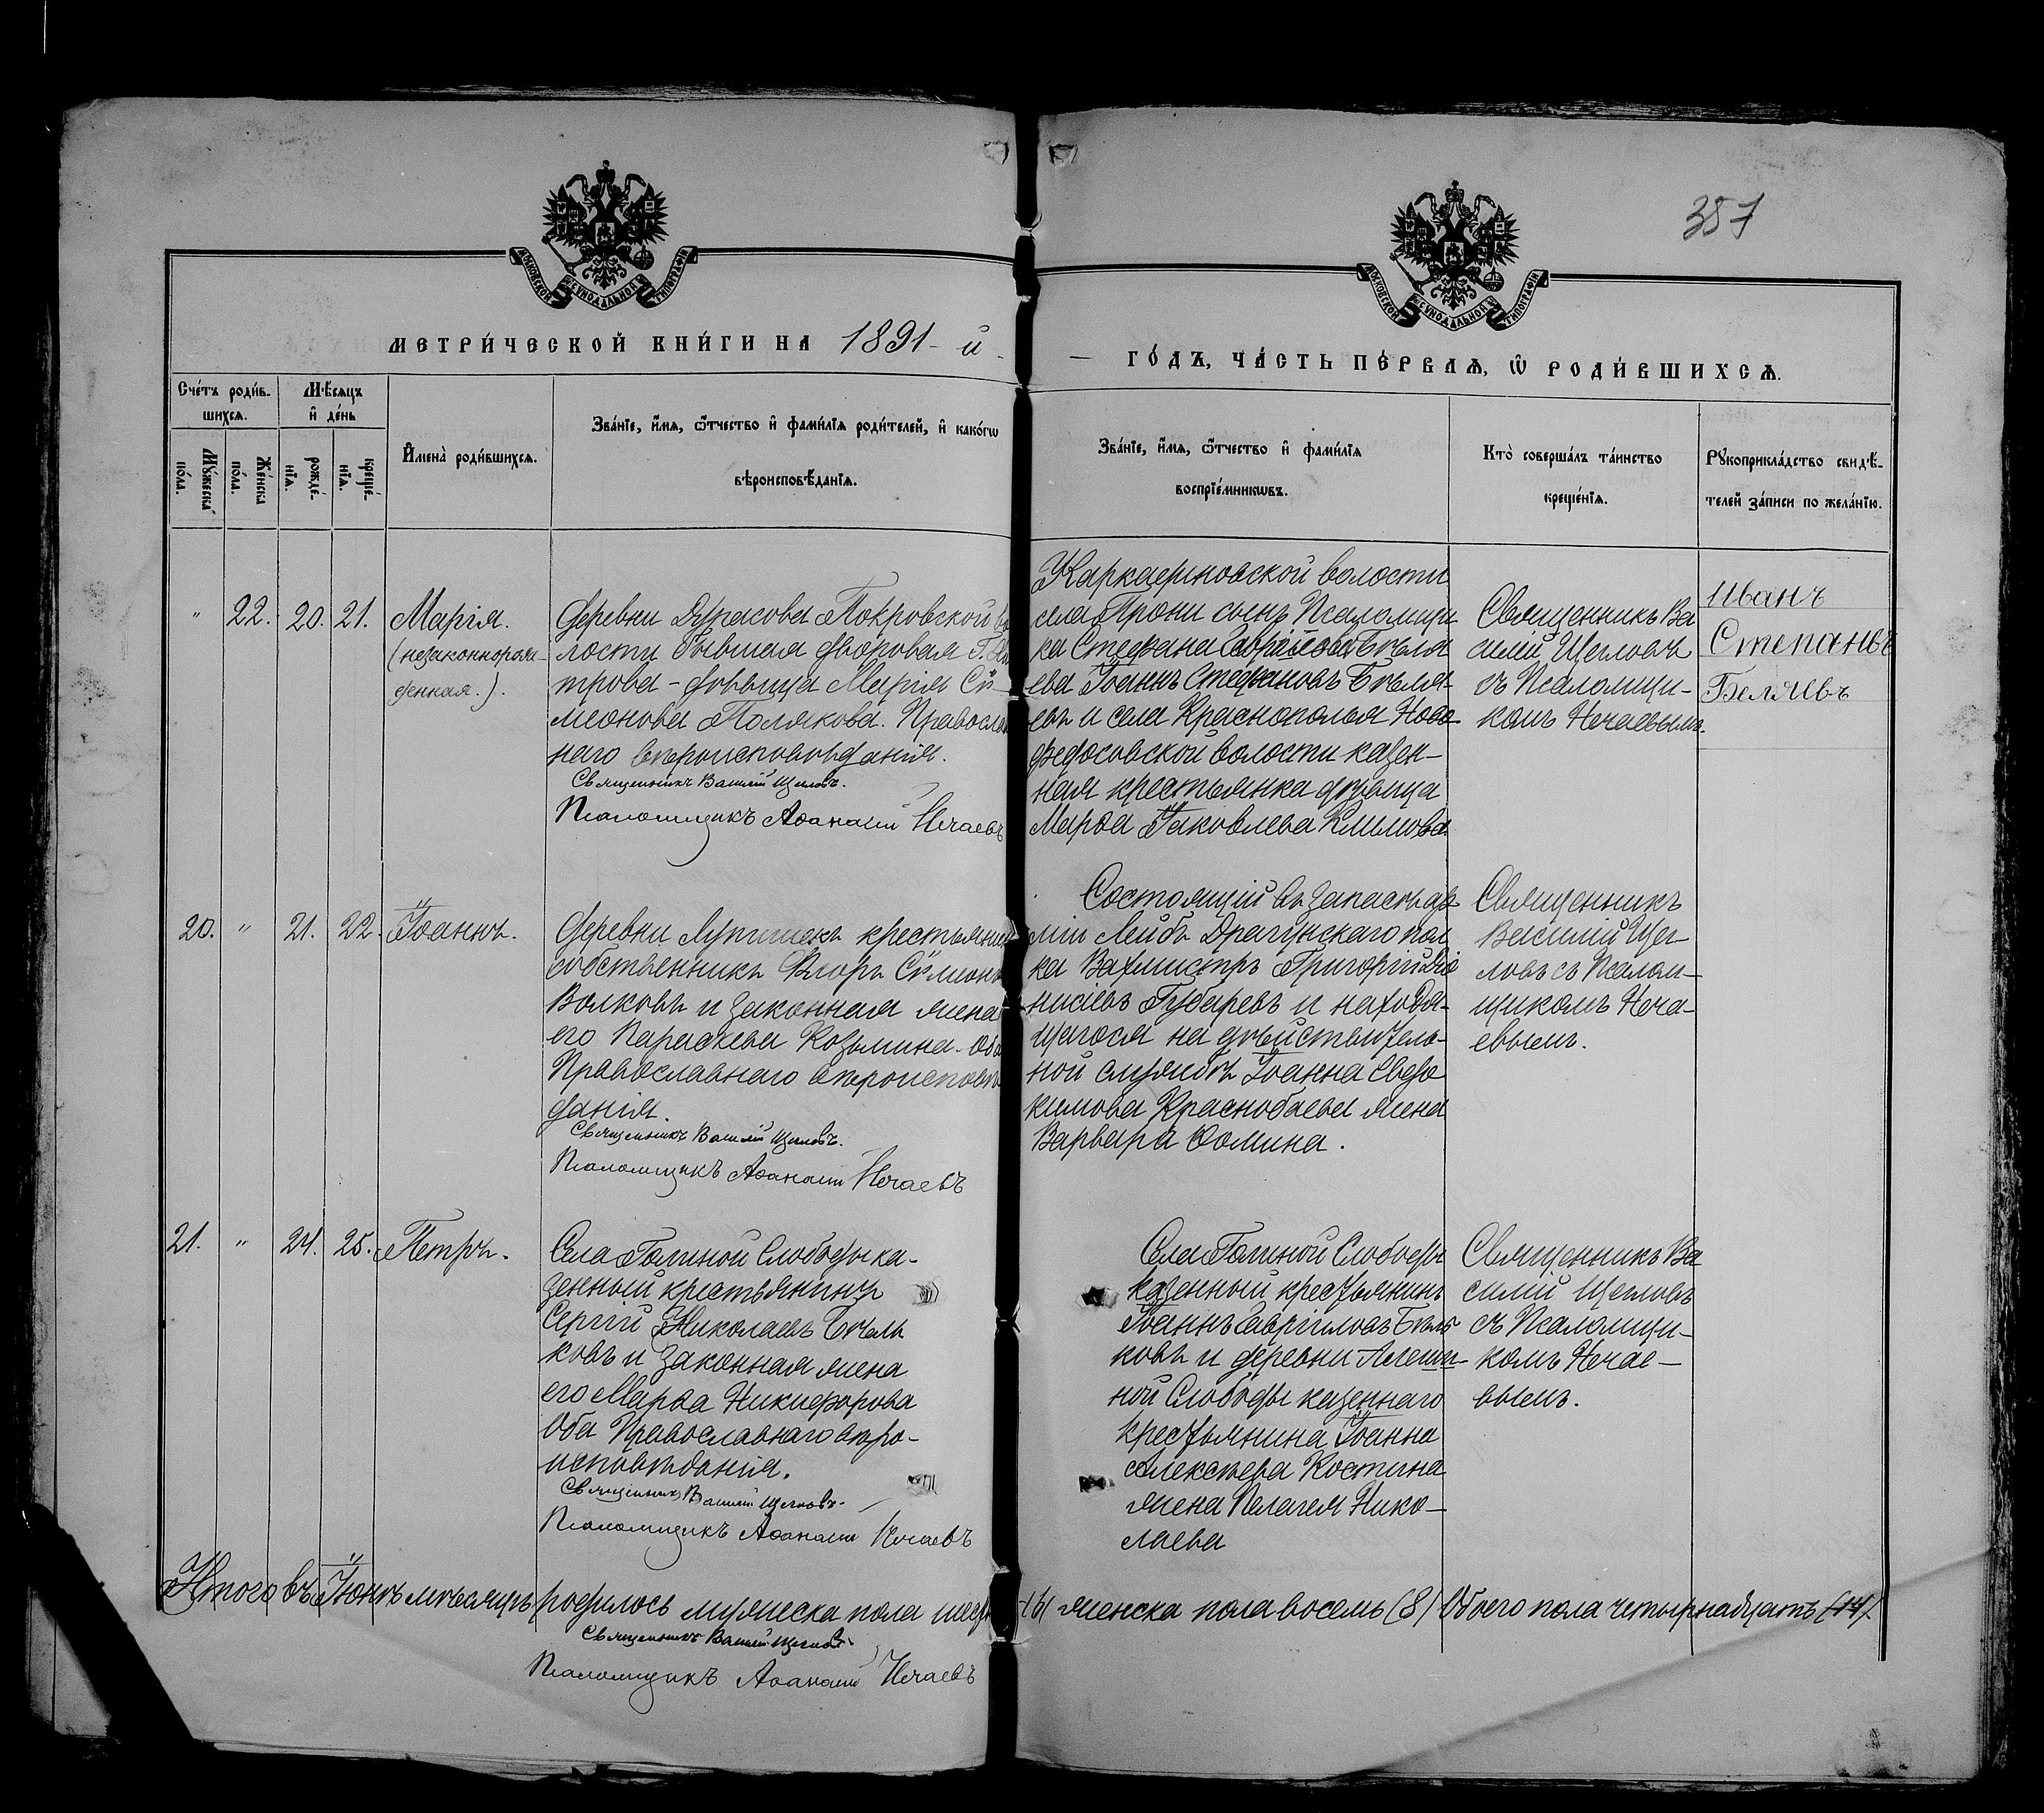 357
МОСКОВСКОЙ СѴНОДАЛЬНОЙ ТИПОГРАФІИ
МОСКОВСКОЙ СѴНОДАЛЬНОЙ ТИПОГРАФІИ
МЕТРИ́ЧЕСКОЙ КНИ́ГИ НА 1891-й
ГО́ДЪ, ЧА́СТЬ ПЕ́РВАѦ, Ѿ РОДИ́ВШИХСѦ.
Сче́тъ роди́в-
шихсѧ.
Мꙋ́жеска
по́ла.
Же́нска
по́ла.
Мѣ́сѧцъ
и҆ де́нь
рожде́-
нїѧ.
креще́-
нїѧ.
И҆мена̀ роди́вшихсѧ.
Зва́нїе, и҆́мѧ, ѻ҆́тчество и҆ фами́лїѧ роди́телей, и҆ како́гѡ
вѣроисповѣ́данїѧ.
Зва́нїе, и҆́мѧ, ѻ҆́тчество и҆ фами́лїѧ
воспрїе́мникѡвъ.
Кто̀ соверша́лъ та́инство
креще́нїѧ.
Рꙋкоприкла́дство свидѣ́-
телей за́писи по жела́нїю.
"
22.
20.
21.
Марія.
(незаконнорож-
денная.).
Деревни Покровской во
лости бывшая дворовая Г.
трова - дѣвица Марія Сѵ-
меонова Полякова. Православ
наго вѣроисповѣданія.
Священникъ Василій Щегловъ.
Псаломщикъ Аѳанасій Нечаевъ
волости
села Прони сынъ Псаломщи
ка Стефана Гавріилова Бѣля
ева Іоаннъ Стефановъ Бѣля-
евъ и села Краснополья Ново-
федосовской волости казен-
ная крестьянка дѣвица
Марѳа Іаковлева Климова
Священникъ Ва
силій Щегловъ
съ Псаломщи-
комъ Нечаевымъ.
Иванъ
Степановъ
Беляевъ
20.
"
21.
22.
Іоаннъ.
Деревни Лупишекъ крестьянинъ
собственникъ Егоръ Сѵмеоновъ
Волковъ и законная жена
его Параскева Козьмина. Оба
Православнаго вѣроисповѣ
данія.
Священникъ Василій Щегловъ.
Псаломщикъ Аѳанасій Нечаевъ
Состоящій въ запасѣ ар
міи Лейбъ Драгунскаго пол
ка Вахмистръ Григорій Діо
нисіевъ Губаревъ и находя-
щагося на дѣйствитель-
ной службѣ Іоанна Евдо
кимова Краснобаева жена
Варвара Ѳомина.
Священникъ
Василій Щег-
ловъ съ Псалом-
щикомъ Неча-
евымъ.
21.
"
24.
25.
Петръ.
Села Гоминой Слободы ка-
зенный крестьянинъ
Сергій Николаевъ Бѣль
ковъ и законная жена
его Марѳа Никифорова
Оба Православнаго вѣро-
исповѣданія.
Священникъ Василій Щегловъ.
Псаломщикъ Аѳанасій Нечаевъ
Села Гоминой Слободы
казенный крестьянинъ
Іоаннъ Гавріиловъ Бѣль
ковъ и деревни Алеши-
ной Слободы казеннаго
крестьянина Іоанна
Алексѣева Костина
жена Пелагея Нико-
лаева
Священникъ Ва
силій Щегловъ
съ Псаломщи-
комъ Нечае-
вымъ.
Итого въ Іюнѣ мѣсяцѣ родилось мужеска пола шесть (6) женска пола восемь (8) Обоего пола четырнадцать (14).
Священникъ Василій Щегловъ
Псаломщикъ Аѳанасій Нечаевъ